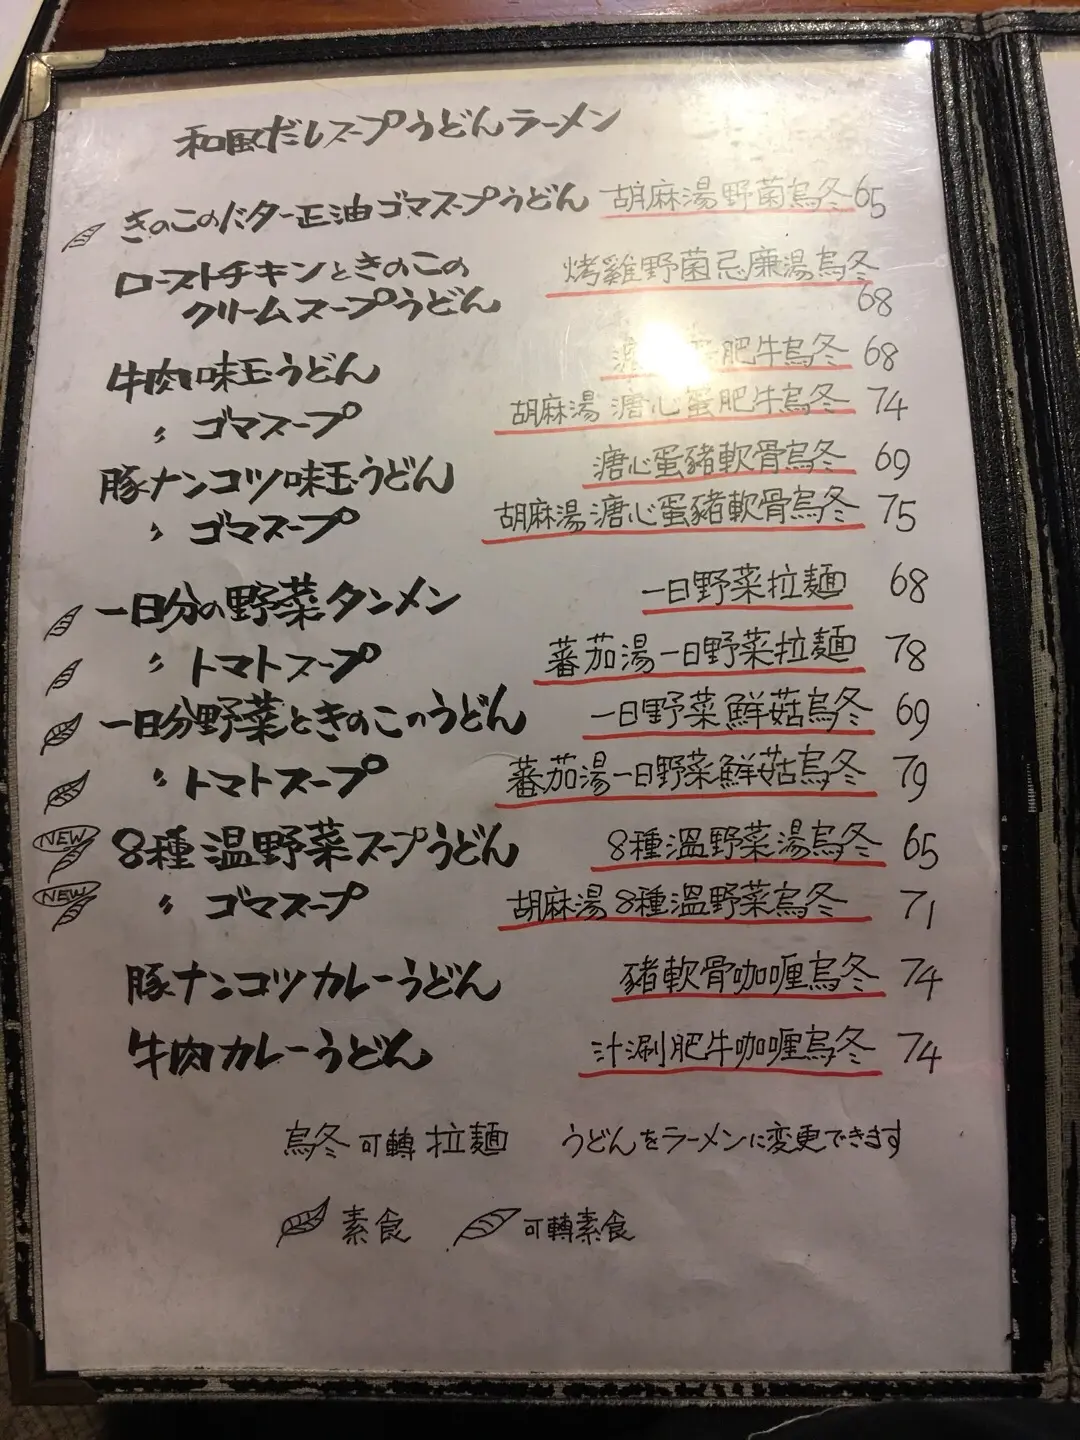 和風だしスープうどんラーメン
きのこのバター正油ゴマスープうどん 胡麻湯野菌烏冬 65
ローストチキンときのこの
クリームスープうどん 烤雞野菌忌廉湯烏冬 68
牛肉味玉うどん 肥牛烏冬 68
〃 ゴマスープ 胡麻湯溏心蛋肥牛烏冬 74
豚ナンコツ味玉うどん 溏心蛋豬軟骨烏冬 69
〃 ゴマスープ 胡麻湯溏心蛋豬軟骨烏冬 75
一日分の野菜タンメン 一日野菜拉麵 68
〃 トマトスープ 蕃茄湯一日野菜拉麵 78
一日分野菜ときのこのうどん 一日野菜鮮菇烏冬 69
〃 トマトスープ 蕃茄湯一日野菜鮮菇烏冬 79
NEW 8種温野菜スープうどん 8種溫野菜湯烏冬 65
NEW 〃 ゴマスープ 胡麻湯8種溫野菜烏冬 71
豚ナンコツカレーうどん 豬軟骨咖喱烏冬 74
牛肉カレーうどん 汁涮肥牛咖喱烏冬 74
烏冬可轉拉麵 うどんをラーメンに変更できます
素食 可轉素食